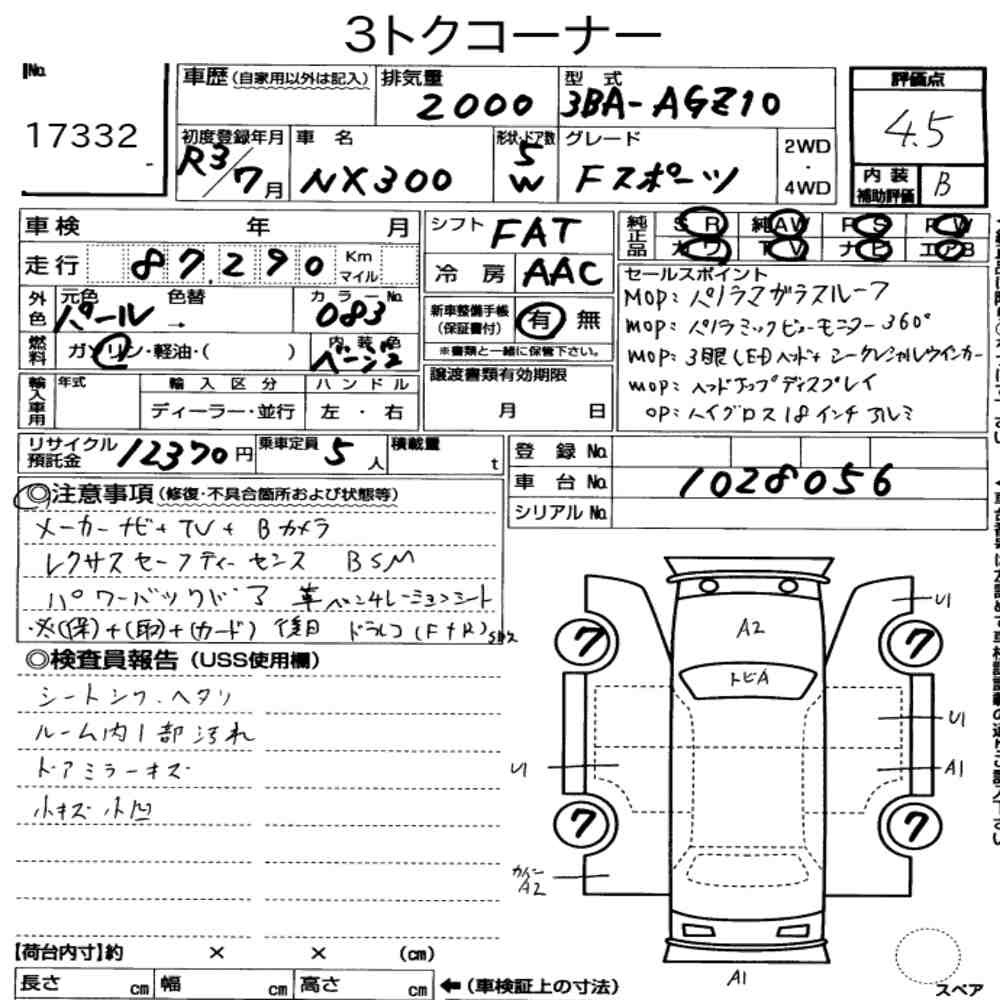 3トクコーナー
No.
17332
車歴(自家用以外は記入)
排気量
2000
型式
3BA-AGZ10
評価点
4.5
内装
補助評価
B
初度登録年月
R3/7月
車名
NX300
形状・ドア数
5
W
グレード
Fスポーツ
2WD
・
4WD
車検 年 月
走行 87,290 Km マイル
外色
元色 パール
色替 →
カラーNo. 083
燃料
ガソリン・軽油・( )
内装色
ベージュ
輸入車用
年式
輸入区分
ディーラー・並行
ハンドル
左・右
シフト FAT
冷房 AAC
新車整備手帳
(保証書付)
有 無
※書類と一緒に保管下さい。
譲渡書類有効期限
月 日
純正品
SR 純AW PS PW
カワ TV ナビ エアB
セールスポイント
MOP: パノラマガラスルーフ
MOP: パノラミックビューモニター 360°
MOP: 3眼LEDヘッド+シークレンシャルウインカー
MOP: ヘッドアップディスプレイ
OP: ハイグロス18インチアルミ
リサイクル
預託金
12370円
乗車定員 5人
積載量 t
登録No.
車台No. 1028056
シリアルNo.
◎注意事項(修復・不具合箇所および状態等)
メーカーナビ+TV+Bカメラ
レクサスセーフティーセンス BSM
パワーバックドア 革ベンチレーションシート
・※(保)+(取)+(カード) 後日 ドラレコ(F+R)
◎検査員報告(USS使用欄)
シートシワ・ヘタリ
ルーム内1部汚れ
ドアミラーキズ
小キズ小凹
【荷台内寸】約 × × (cm)
長さ cm 幅 cm 高さ cm
←(車検証上の寸法)
A2
トビA
U1
7
7
U1
U1
A1
7
7
A2
A1
スペア